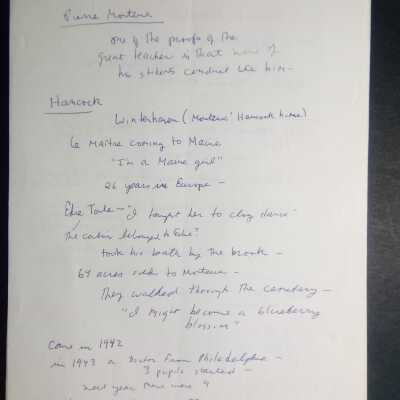 Pierre Monteux
one of the proofs of the
great teacher is that none of
his students conduct like him -
Hancock
Winterhaven (Monteux' Hancock home)
Le Maître coming to Maine
"I'm a Maine girl"
26 years in Europe -
- "I taught her to clog dance"
The cabin belonged to
took his bath by the brook -
64 acres sold to Monteux -
They walked through the cemetery -
"I might become a blueberry
blossom"
Came in 1942
in 1943 a doctor from Philadelphia -
3 pupils started -
next year there were 9